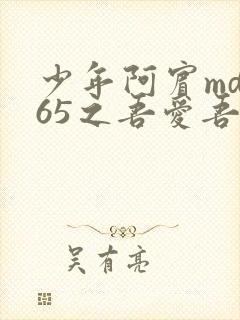 少年阿賓md
65之吾愛吾
吴有亮